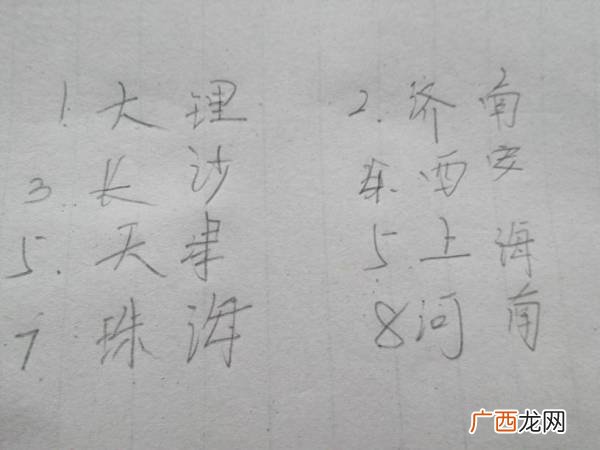 1. 大理 2. 济南
3. 长沙 4. 西安
5. 天津 5 上海
7 珠海 8 河南
广西龙网